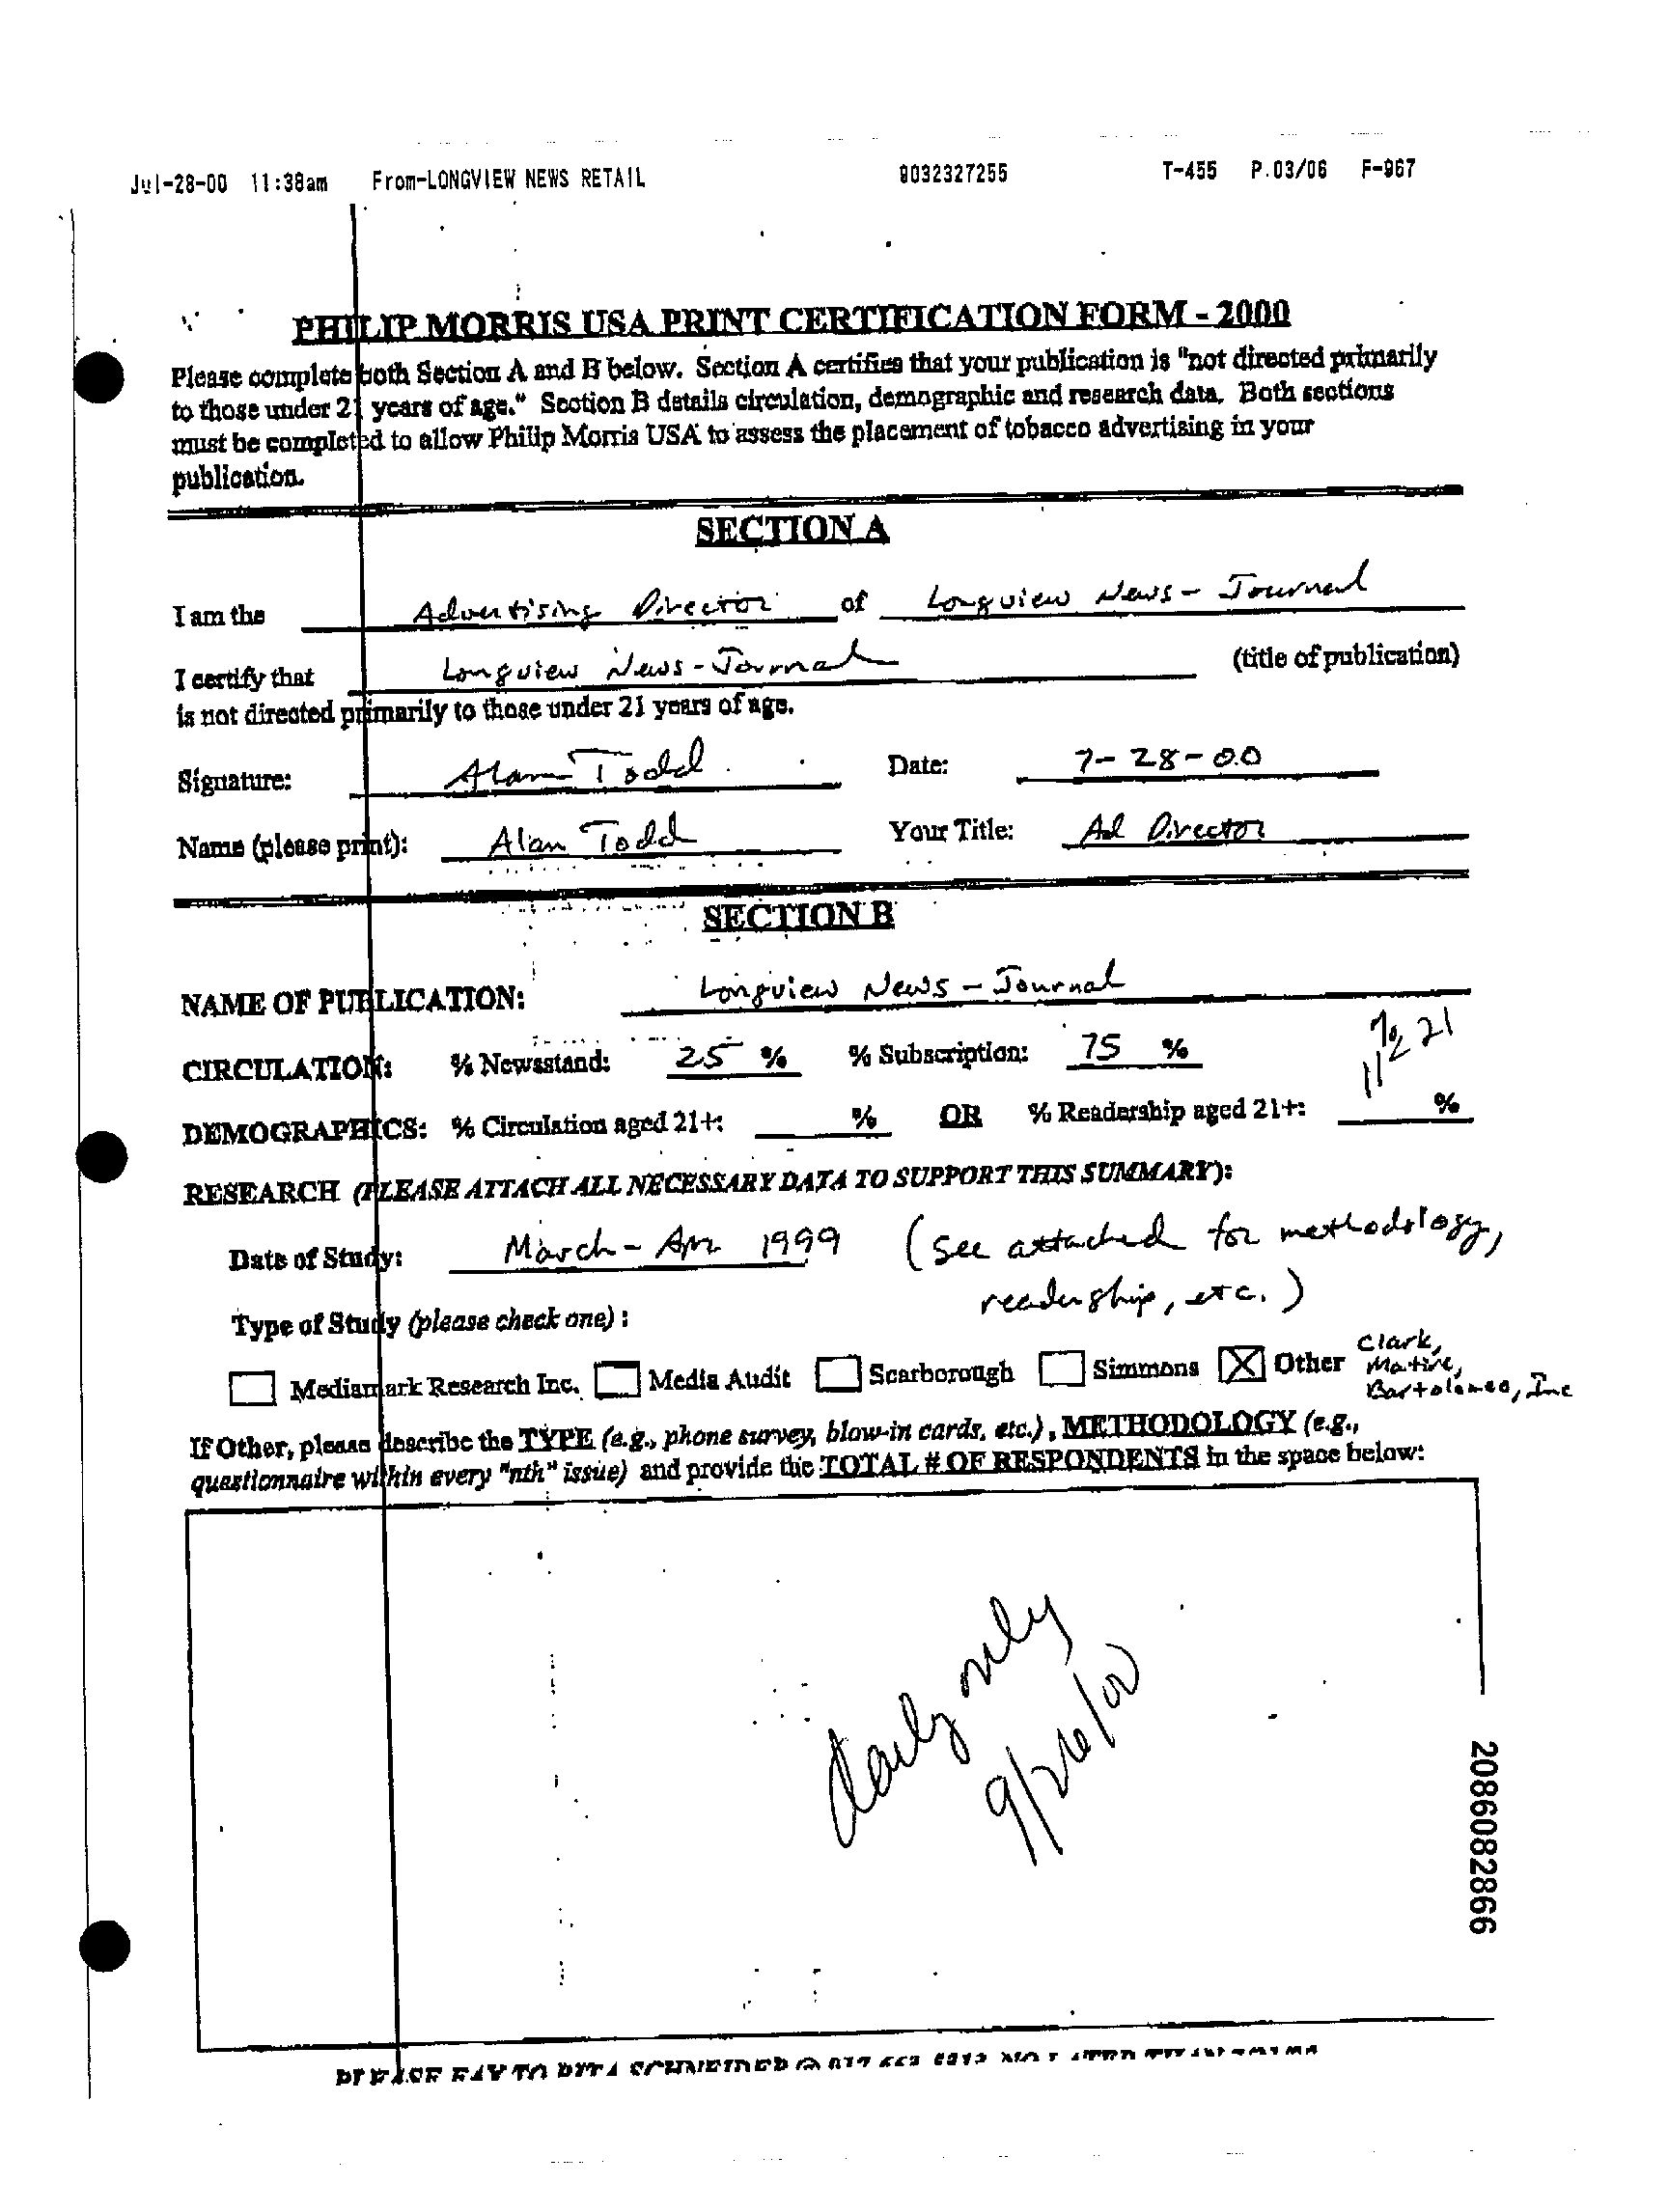 Jul-28-00 11:38am From-LONGVIEW NEWS RETAIL 9032327255 T-455 P.03/06 F-967
PHILIP MORRIS USA PRINT CERTIFICATION FORM - 2000
Please complete both Section A and B below. Section A certifies that your publication is "not directed primarily
to those under 21 years of age." Section B details circulation, demographic and research data. Both sections
must be completed to allow Philip Morris USA to assess the placement of tobacco advertising in your
publication.
SECTION A
I am the Advertising Director of Longview News - Journal
I certify that Longview News - Journal (title of publication)
is not directed primarily to those under 21 years of age.
Signature: Alan Todd Date: 7-28-00
Name (please print): Alan Todd Your Title: Ad Director
SECTION B
NAME OF PUBLICATION: Longview News - Journal
CIRCULATION: % Newsstand: 25 % % Subscription: 75 %
21
DEMOGRAPHICS: % Circulation aged 21+: % OR % Readership aged 21+: %
RESEARCH (PLEASE ATTACH ALL NECESSARY DATA TO SUPPORT THIS SUMMARY):
Date of Study: March - Apr 1999 (see attached for methodology,
readership, etc.)
Type of Study (please check one) :
Mediamark Research Inc. Media Audit Scarborough Simmons Other Clark,
Martire,
Bartolomeo, Inc
If Other, please describe the TYPE (e.g., phone survey, blow-in cards, etc.), METHODOLOGY (e.g.,
questionnaire within every "nth" issue) and provide the TOTAL # OF RESPONDENTS in the space below:
daily only
9/26/00
2086082866
PLEASE FAX TO RITA SCHNEIDER @